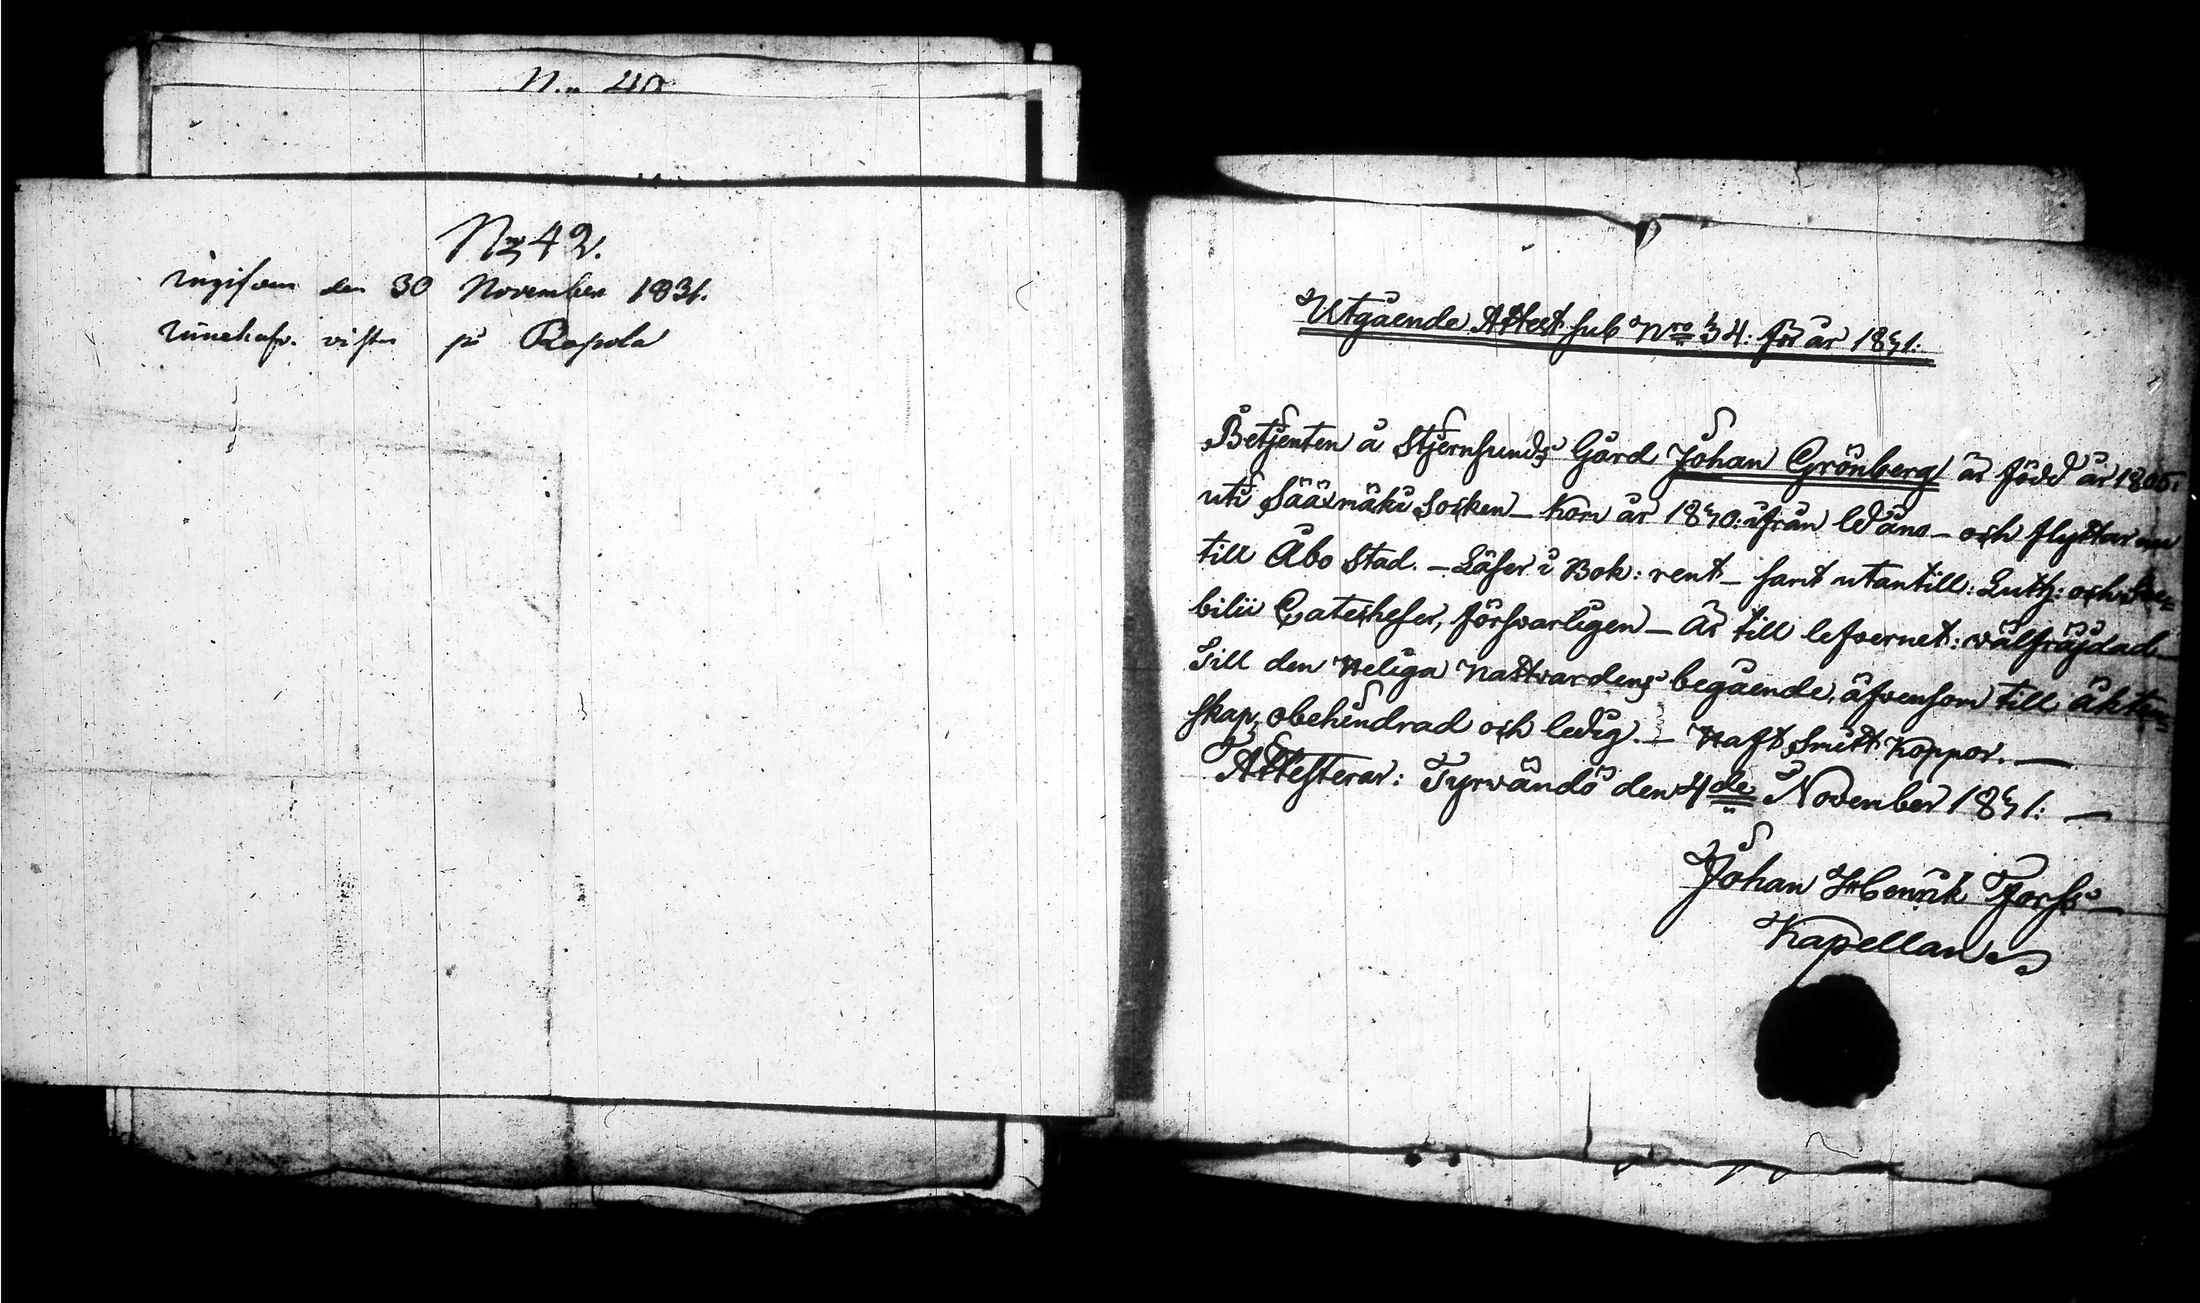 N:o 40
N:o 42.
ingifven den 30 November 1831.
innehafv. vistas på Rapola
Utgående Attest sub Nro 34: för år 1831:
Betjenten å Stjernsunds Gård Johan Grönberg är född år 1805:
uti Sääxmäki Socken – kom år 1830: ifrån Wåno – och flyttar nu
till Åbo Stad. – Läser i Bok: rent – samt utantill: Luth: och Sve-
bilii Catecheser, försvarligen – Är till lefvernet: wälfräjdad –
Till den Heliga Nattvardens begående, äfvensom till äkten-
skap, obehindrad och ledig. – Haft Smitt Koppor. –
Attesterar: Tyrvändö den 4de November 1831: –
Johan Henrik Forss
Kapellan